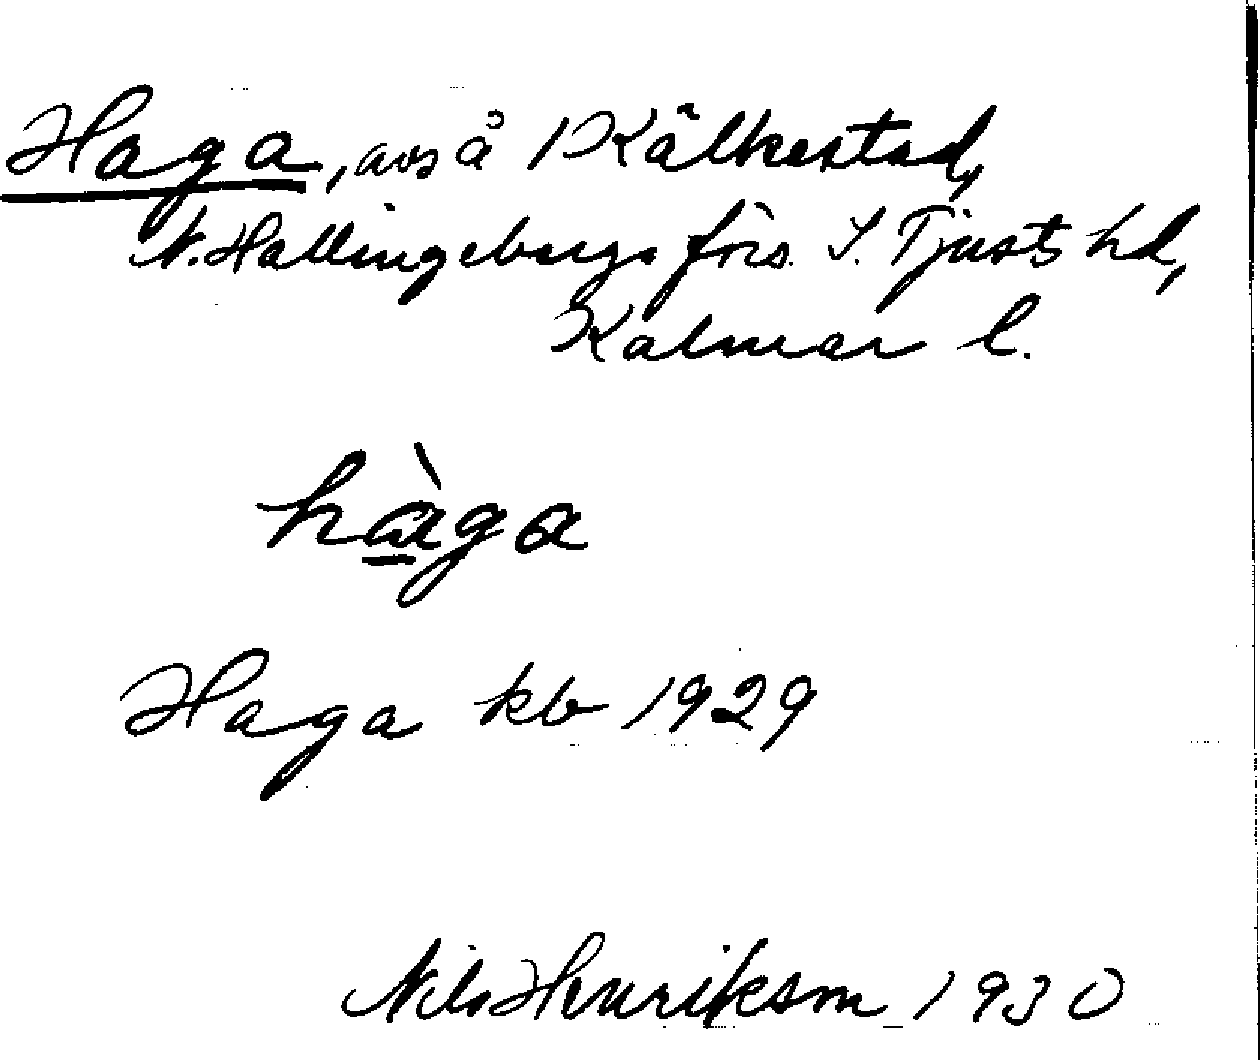 Haga, avs å 1 Kälkestad,
V. Hallingebergs förs. S. Tjusts hd,
Kalmar l.
hàga
Haga kb 1929
Nils Henrikson 1930